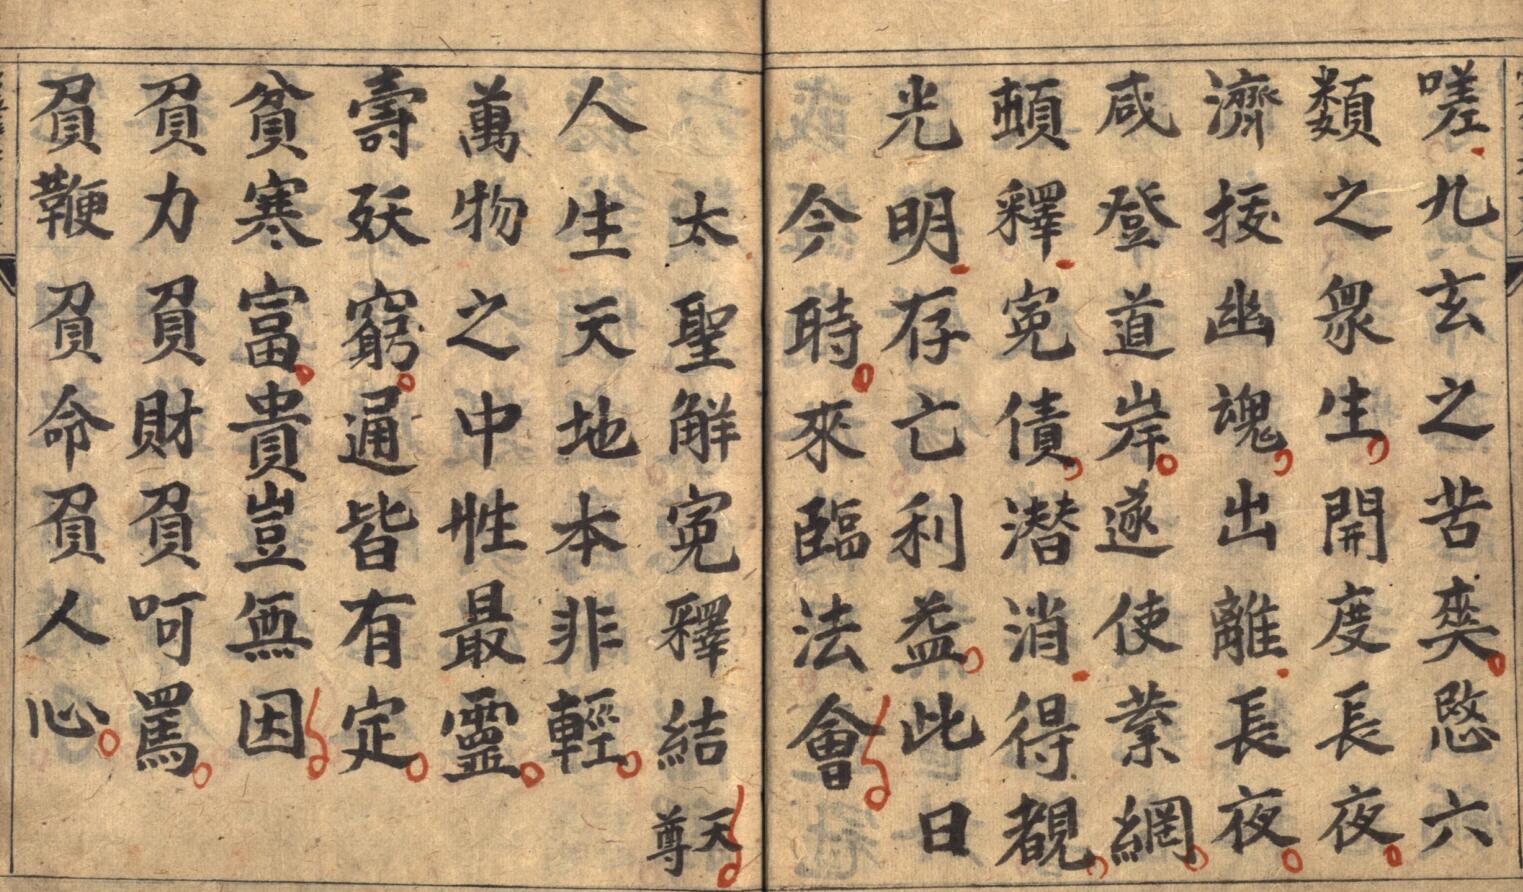 嗟九玄之苦爽愍六
類之衆生開度長夜
濟拔幽魂出離長夜
咸登道岸遂使業網
頓釋寃債潛消得覩
光明存亡利益此日
今時來臨法會
太聖解寃釋結天尊
人生天地本非輕
萬物之中性最靈
壽妖窮通皆有定
貧寒富貴豈無因
負力負財負呵罵
負鞭負命負人心